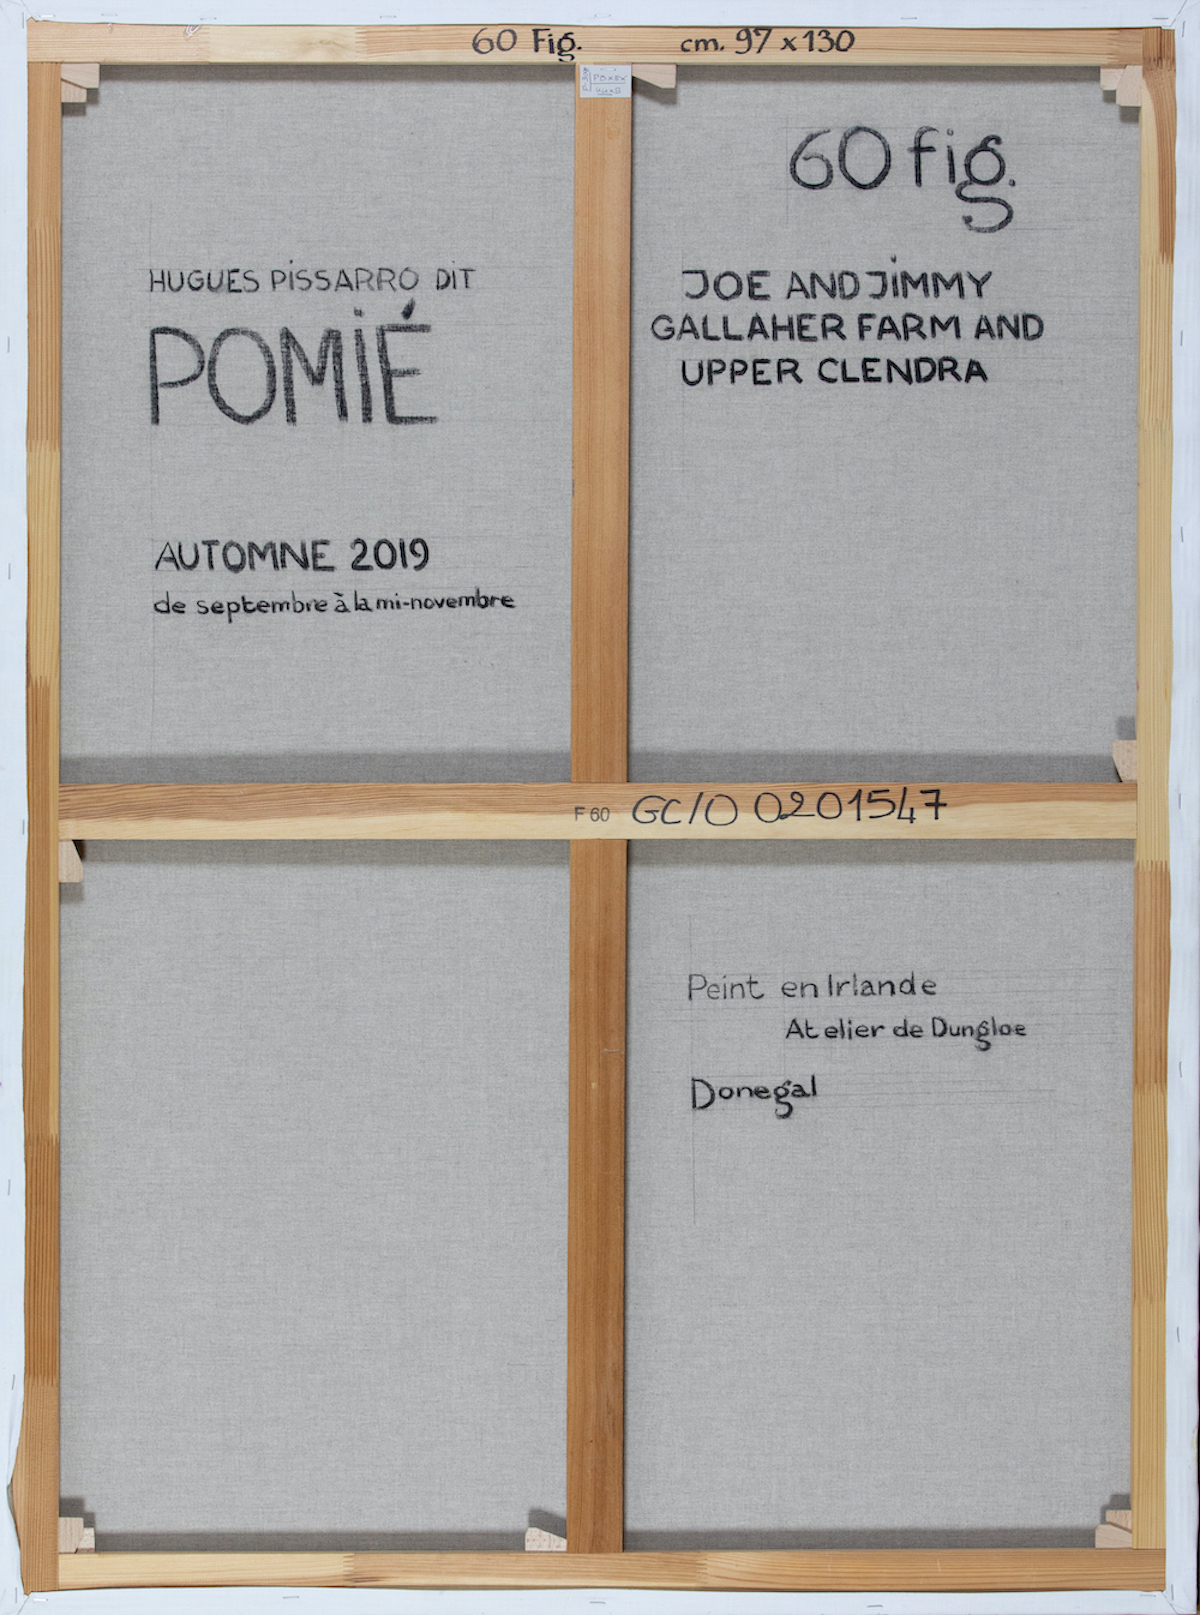 60 Fig. cm. 97 x 130
60 fig.
HUGUES PISSARRO DIT
POMIÉ
JOE AND JIMMY
GALLAHER FARM AND
UPPER CLENDRA
AUTOMNE 2019
de septembre à la mi-novembre
F 60 GC/O 0201547
Peint en Irlande
Atelier de Dungloe
Donegal